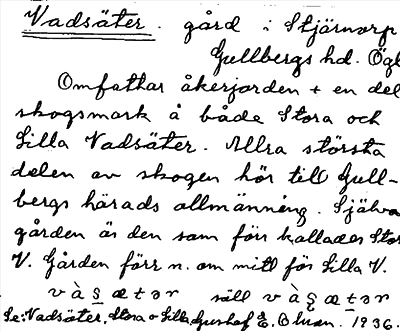 Vadsäter. gård i Stjärnorp
Gullbergs hd. Ögl
Omfattar åkerjorden + en del
skogsmark å både Stora och
Lilla Vadsäter. Allra största
delen av skogen hör till Gull-
bergs härads allmänning. Själva
gården är den som förr kallades Stor
V. Gården förr n. om mitt för Lilla V.
v à s æ t ə r säll v à s æ t ə r
Se: Vadsäter, Stora o Lilla. Gustaf E. Ohson. 1936.